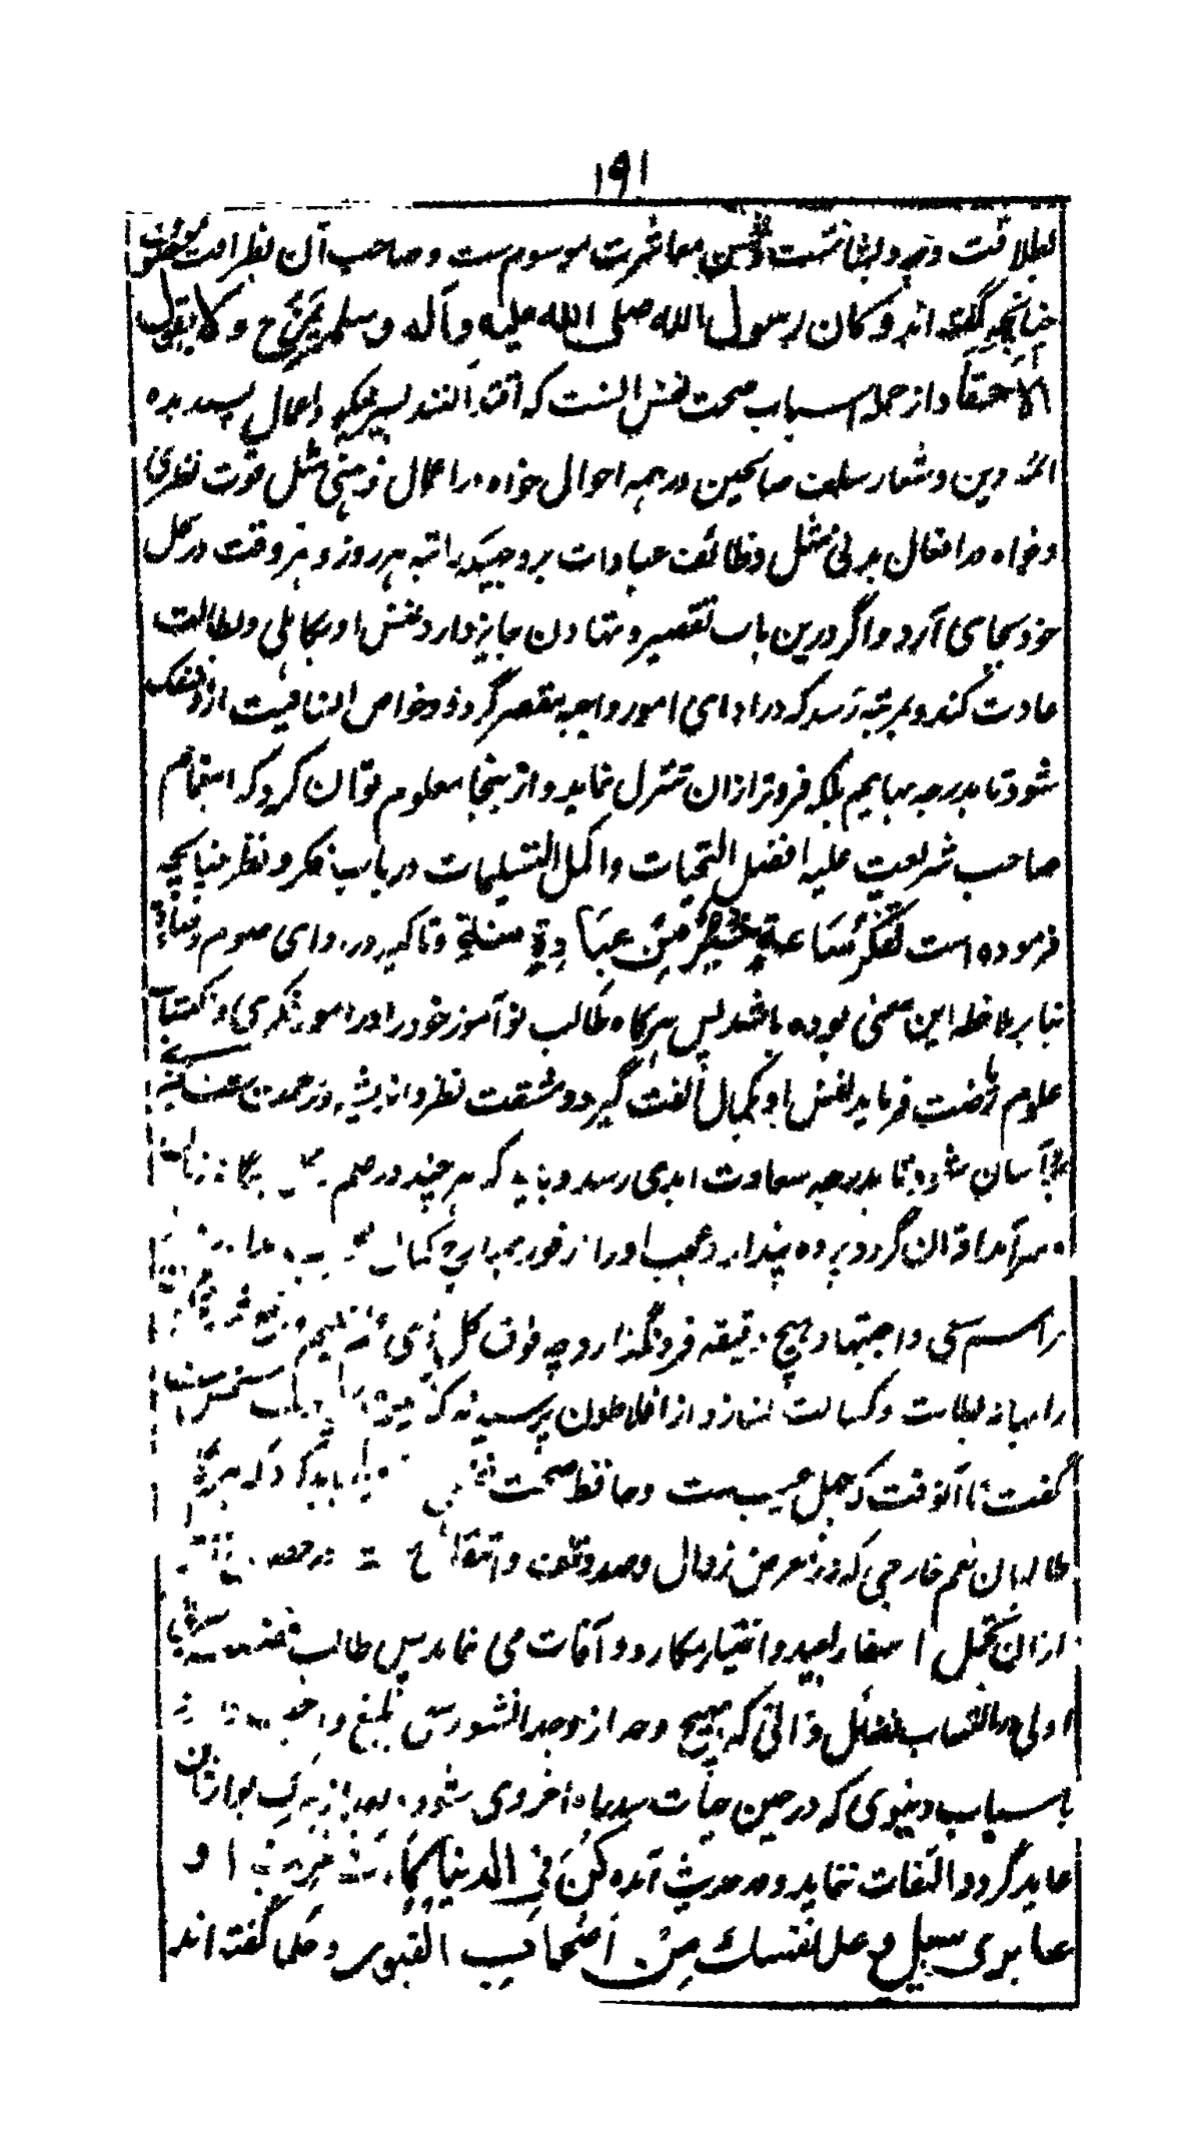 ۱۹۱
بطلاقت وجه و بشاشت و حسن معاشرت موسوم ست و صاحب آن بظرافت موصوف
چنانچه گفته اند و کان رسول الله صلی الله علیه و آله و سلم یمزح و لا یقول
الا حقا و از جمله اسباب صحت نفس آنست که اقتدا کنند بسیر حکما و اعمال پسندیده
ائمه دین و شعار سلف صالحین در همه احوال خواه در اعمال ذهنی مثل قوت نظری
و خواه در افعال بدنی مثل وظائف عبادات بر وجهیکه راتبه هر روز و هر وقت در محل
خود بجای آرد و اگر درین باب تقصیر و تهاون جایز دارد نفس او بکاهلی و بطالت
عادت کند و بمرتبه رسد که در ادای امور واجبه مقصر گردد و خواص انسانیت ازو منفک
شود تا بدرجه بهایم بلکه فروتر ازان تنزل نماید و از ینجا معلوم توان کرد که اهتمام
صاحب شریعت علیه افضل التحیات و اکمل التسلیمات در باب فکر و نظر چنانچه
فرموده است تفکر ساعة خیر من عبادة سنة و تاکید در ادای صوم و صلوة
بنا بر ملاحظه این معنی بوده باشد پس هرگاه طالب نو آموز خود را در امور فکری و اکتساب
علوم ریاضت فرماید نفس او بکمال الفت گیرد و مشقت نظر و اندیشه
آسان شود تا بدرجه سعادت ابدی رسد و باید که هر چند در علم
سرآمد اقران گردد پرده پندار و عجب او را از
مراسم سعی و اجتهاد هیچ دقیقه فرو نگذارد و چه فوق کل ذی علم علیم و
را بهانه بطالت و کسالت نسازد و از افلاطون پرسیدند که
گفت تا آنوقت که جهل عیب ست و حافظ صحت نفس را باید که
طالبان نعم خارجی که در معرض زوال و صدد تلف و انتقال
ازان تحمل اسفار بعیده و اختیار مکاره و آفات می نمایند پس طالب
اولی در اکتساب فضائل ذاتی که بهیچ وجه از وجوه
باسباب دنیوی که در حین حیات سد راه اخروی شود
عاید گردد التفات ننماید و در حدیث آمده کن فی الدنیا کانک غریب او
عابری سبیل و عد نفسک من اصحاب القبور و حکما گفته اند